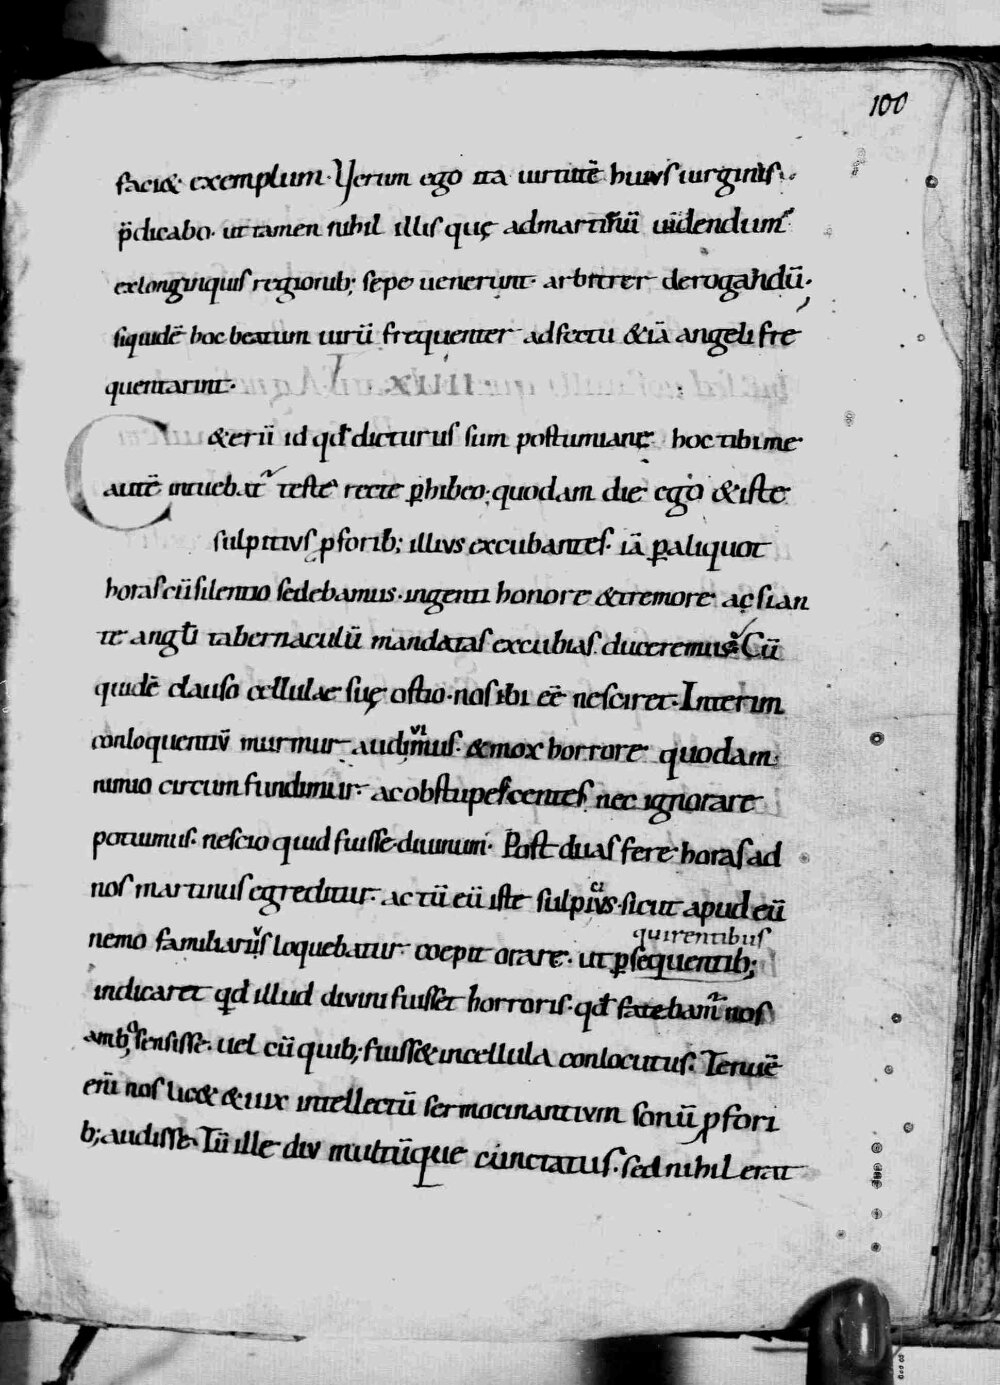 100
faci& exemplum· Verum ego ita uirtutē huius uirginis·
p̄dicabo· ut tamen nihil illis quę admartinū uidendum
exlonginquis regionib; sepe uenerunt· arbitrer derogandū·
siquidē hoc beatum uirū frequenter adfectu &iā angeli fre
quentarint·
C&erū id qd̄ dicturus sum postumiane hoc tibi me
autē intueb·tr̄ teste recte ꝑhibeo; quodam die ego & iste
sulpitius p forib; illius excubantes· iā ꝑaliquot
horas cū silentio sedebamus· ingenti honore &tremore acsi an
te angłi tabernaculū mandatas excubias duceremus· Cū
quidē clauso cellulae suę ostio· nos ibi eē nesciret· Interim
conloquentiū murmur audiuimus· &mox horrore quodam
nimio circum fundimur· ac obstupescentes nec ignorare
potuimus· nescio quid fuisse diuinum· Post duas fere horas ad
nos martinus egreditur· ac tū eū iste sulpicius· sicut apud eū
nemo familiarius loquebatur coepit orare· ut ꝑsequentib;
quirentibus
indicaret qd̄ illud diuini fuisset horroris· qd̄ fatebamr̄ nos
ambo sensisse· uel cū quib; fuiss& incellula conlocutus· Tenuē
eni nos lic& &uix intellectū sermocinantium sonū p fori
b; audisse· Tū ille diu multūque cunctatus· sed nihil erat